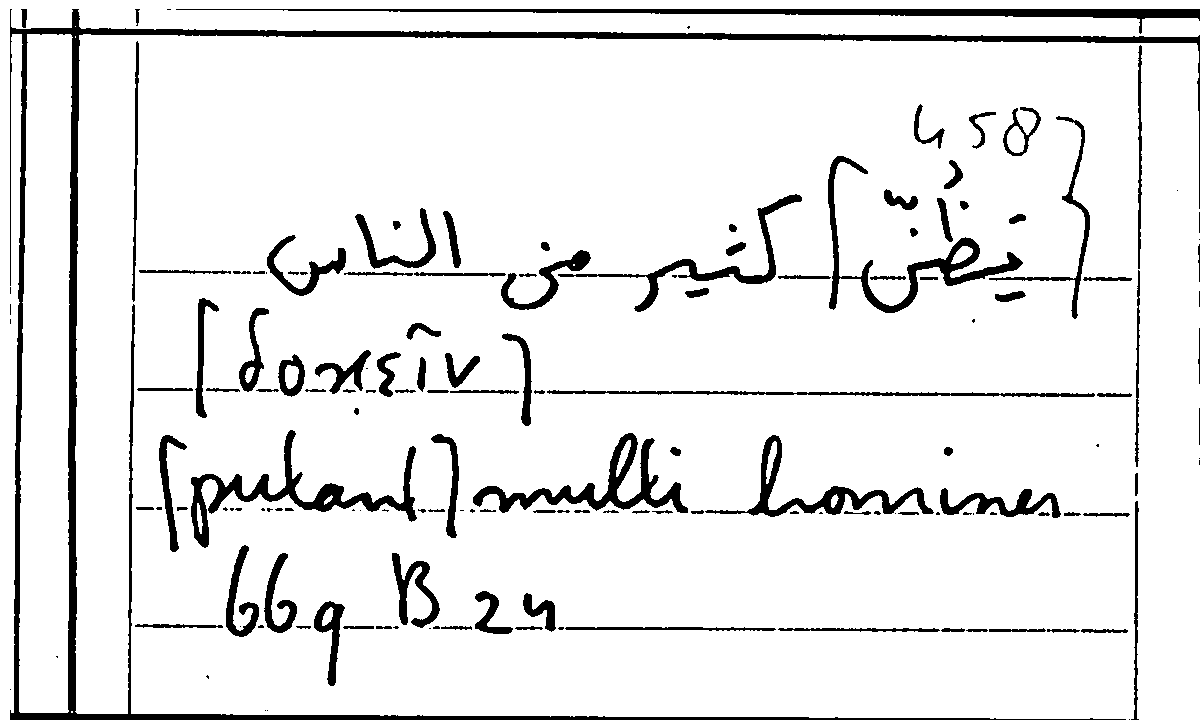 458
[يظنّ] كثير من الناس
[δοκεῖν]
[putant] multi homines
669 B 24